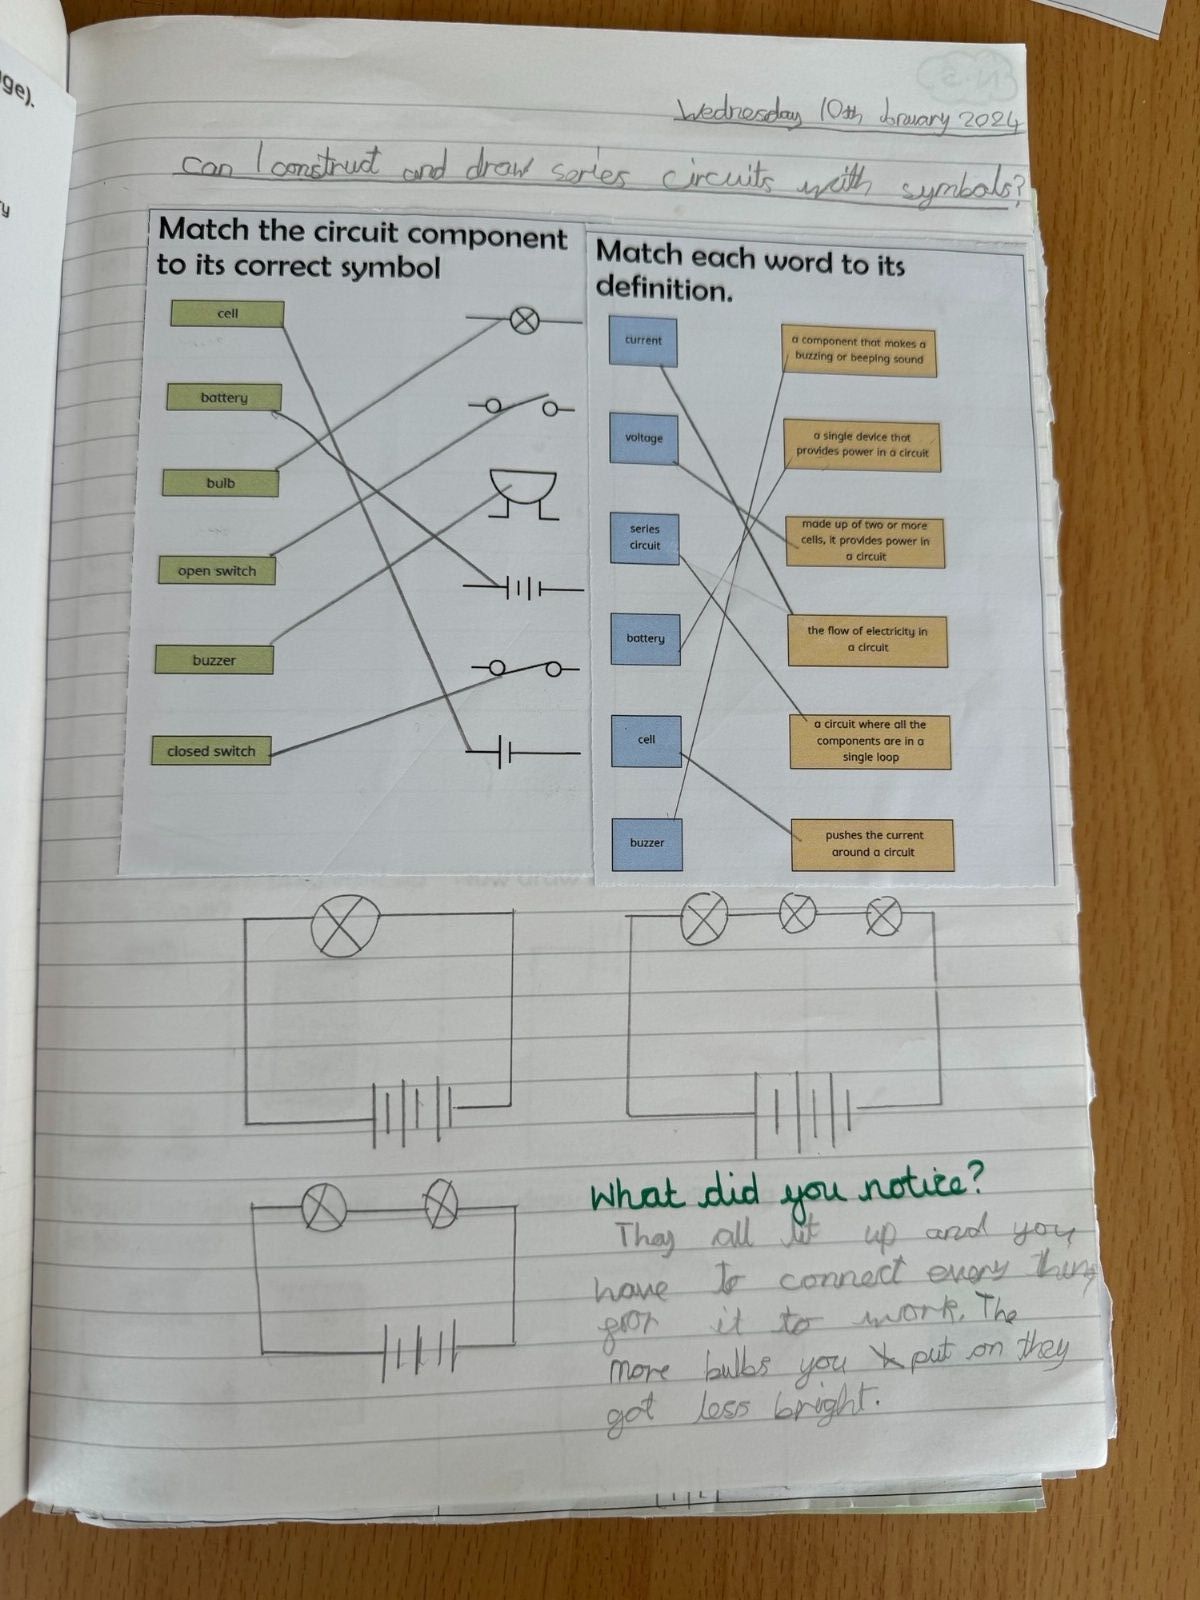 ge).
y
N.S
Wednesday 10th January 2024
Can I construct and draw series circuits with symbols?
Match the circuit component
to its correct symbol
cell
battery
bulb
open switch
buzzer
closed switch
Match each word to its
definition.
current
voltage
series
circuit
battery
cell
buzzer
a component that makes a
buzzing or beeping sound
a single device that
provides power in a circuit
made up of two or more
cells, it provides power in
a circuit
the flow of electricity in
a circuit
a circuit where all the
components are in a
single loop
pushes the current
around a circuit
What did you notice?
They all lit up and you
have to connect every thing
for it to work. The
more bulbs you put on they
got less bright.